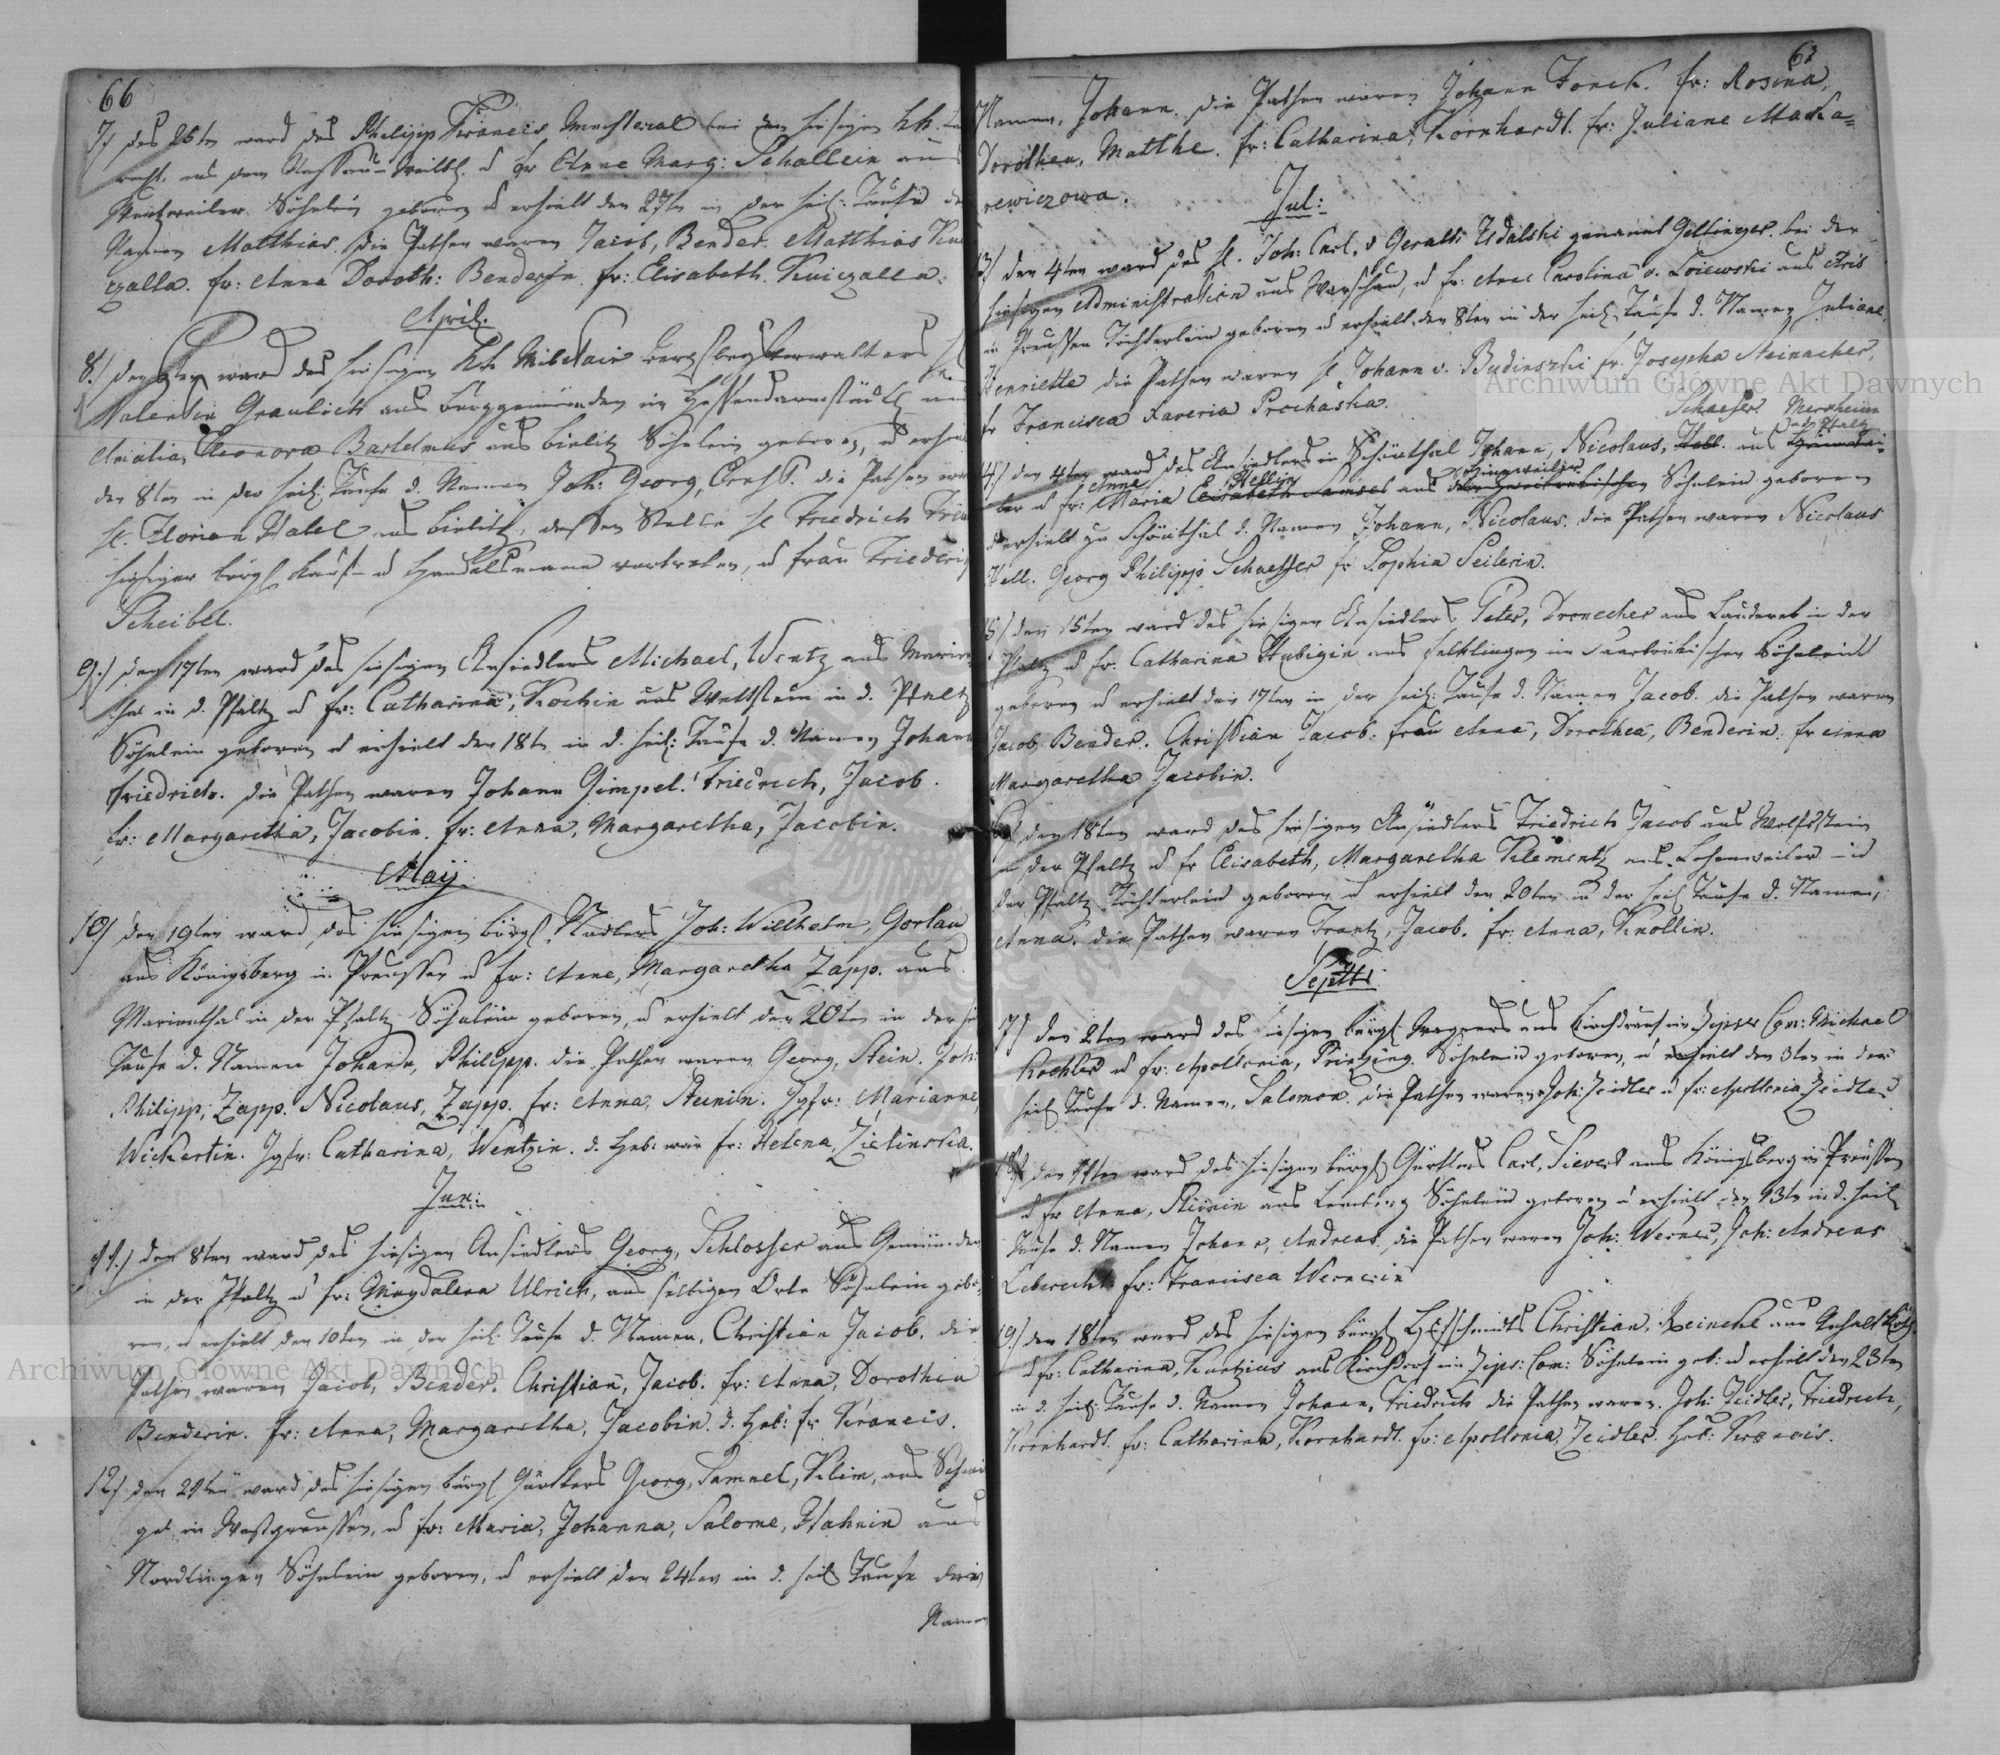 66
7) des 26ten ward des Philipp Francis Magsteral bei den hiesigen kk.
recht, aus dem Nassau-Weilb. u fr Anne Marg: Schallein aus
Söhnlein geboren u erhielt den 27ten in der heil: Taufe d
Namen Matthias. die Pathen waren Jacob, Bender. Matthias Kui
czalla. fr: Anna Doroth: Benderin. fr: Elisabeth. Kuiczalla.
April.
8.) den ward des hiesigen kk Militair verwalters H
Valentin Graulich aus Burggemünden in Hessendarmstädt und
Amalia, Eleonora Bartelmus aus Bielitz Söhnlein geboren, u erhielt
den 8ten in der heil: Taufe d. Namen Joh: Georg, Ernst. die Pathen waren
H. Florian Habel aus Bielitz, dessen Stelle H Friedrich
hiesiger bürgl. Kauf- u Handelsmann vertreten, u Frau Friederi
Scheibel.
9.) den 17ten ward des hiesigen Ansiedlers Michael, Wentz aus Marien
thal in d. Pfaltz u fr: Catharina, Kochin aus Wellstein in d. Pfaltz
Söhnlein geboren u erhielt den 18ten in d. heil: Taufe d. Namen Johann
Friedrich. die Pathen waren Johann Gimpel. Friedrich, Jacob.
fr: Margaretha, Jacobin. fr: Anna, Margaretha, Jacobin.
May.
10) den 19ten ward des hiesigen bürgl. Nadlers Joh: Willhelm, Gorlau
aus Königsberg in Preussen u fr: Anne, Margaretha Zapp. aus
Marienthal in der Pfaltz Söhnlein geboren, u erhielt den 20ten in der heil
Taufe d. Namen Johann, Philipp. die Pathen waren Georg, Stein. Joh:
Philipp, Zapp. Nicolaus, Zapp. fr: Anna, Steinin. Jgfr: Marianne,
Wickertin. Jgfr: Catharina, Wentzin. d. Heb: war fr: Helena, Zielinska.
Jun:
11.) den 8ten ward des hiesigen Ansiedlers Georg, Schlosser aus Gemünden
in der Pfaltz u fr: Magdalena Ulrich, aus selbigen Orte Söhnlein gebo
ren, u erhielt den 10ten in der heil: Taufe d. Namen, Christian Jacob. die
Pathen waren Jacob, Bender. Christian, Jacob. fr: Anna, Dorothea
Benderin. fr: Anna, Margaretha, Jacobin. d. Heb: fr Francis.
12) den 21ten ward des hiesigen bürgl Gürtlers Georg, Samuel, Klein, aus
in Westpreussen, u fr: Maria, Johanna, Salome, Hahnin aus
Nordlingen Söhnlein geboren, u erhielt den 24ten in d. heil Taufe den
Namen
67
Namen, Johann. die Pathen waren Johann Fonck. fr: Rosina,
Dorothea, Matthe. fr: Catharina, Kornhardt. fr: Juliane Maka=
rewiczowa.
Jul:
13) den 4ten ward des H. Joh: Carl, v Geralt Udalski genannt Gellinger. bei der
hiesigen Administration aus Warschau, u fr: Anne Carolina v. Loiewski aus Aris
in Preussen Töchterlein geboren u erhielt den 8ten in der heil Taufe d. Namen Juliane,
Henriette die Pathen waren H Johann v. Budinszki fr. Josepha Steinacher,
fr Francisca Xaveria Prochaska.
Schaefer. Merxheim
in Pfaltz
14) den 4ten ward des Ansiedlers in Schönthal Johann, Nicolaus, Hell. aus
Anna Hellin Hinzweiler
ber u fr: Maria Elisabeth aus dem Zweibrückischen Söhnlein geboren
u erhielt zu Schönthal d. Namen Johann, Nicolaus. die Pathen waren Nicolaus
Hell. Georg Philipp Schaeffer fr Sophia Seilerin.
15) den 15ten ward des hiesigen Ansiedlers Peter, Dronecher aus Lauderet in der
Pfaltz u fr. Catharina Hubigin aus Felklingen im Saarbrükischen Söhnlein
geboren u erhielt den 17ten in der heil: Taufe d. Namen Jacob. die Pathen waren
Jacob, Bender. Christian Jacob: Frau Anna, Dorothea, Benderin. fr Anna
Margaretha Jacobin.
16) den 18ten ward des hiesigen Ansiedlers Friedrich Jacob aus Wolfstein
in der Pfaltz u fr Elisabeth, Margaretha Klementz aus Lohenweiler in
der Pfaltz Töchterlein geboren u erhielt den 20ten in der heil Taufe d. Namen,
Anna. die Pathen waren Frantz, Jacob. fr: Anna, Knollin.
Septbr
17) den 2ten ward des hiesigen bürgl Wagners aus Kirchdrauf im Zipser Com: Michael
Kochler u fr: Apollonia, Prietzing. Söhnlein geboren, u erhielt den 3ten in der
heil Taufe d. Namen, Salomon. die Pathen waren Joh: Zeidler u fr: Apollonia Zeidler
18) den 11ten ward des hiesigen bürgl Gürtlers Carl, Sievert aus Königsberg in Preussen
u fr Anna, Steinin aus Lemberg Söhnlein geboren u erhielt den 13ten in d. heil
Taufe d. Namen Johann, Andreas. die Pathen waren Joh: Werner, Joh: Andreas
Leberecht fr: Francisca Wernerin
19) den 18ten ward des hiesigen bürgl Hufschmidts Christian, Reinicke aus Anhalt Köth:
u fr: Catharina, Kuntzius aus Kirchdorf im Zips: Com: Söhnlein geb: u erhielt den 23ten
in d. heil: Taufe d. Namen Johann, Friedrich die Pathen waren. Joh: Zeidler, Friedrich,
Kornhardt. fr: Catharina, Kornhardt. fr: Apollonia, Zeidler. Heb: Francis.
Archiwum Główne Akt Dawnych
Archiwum Główne Akt Dawnych